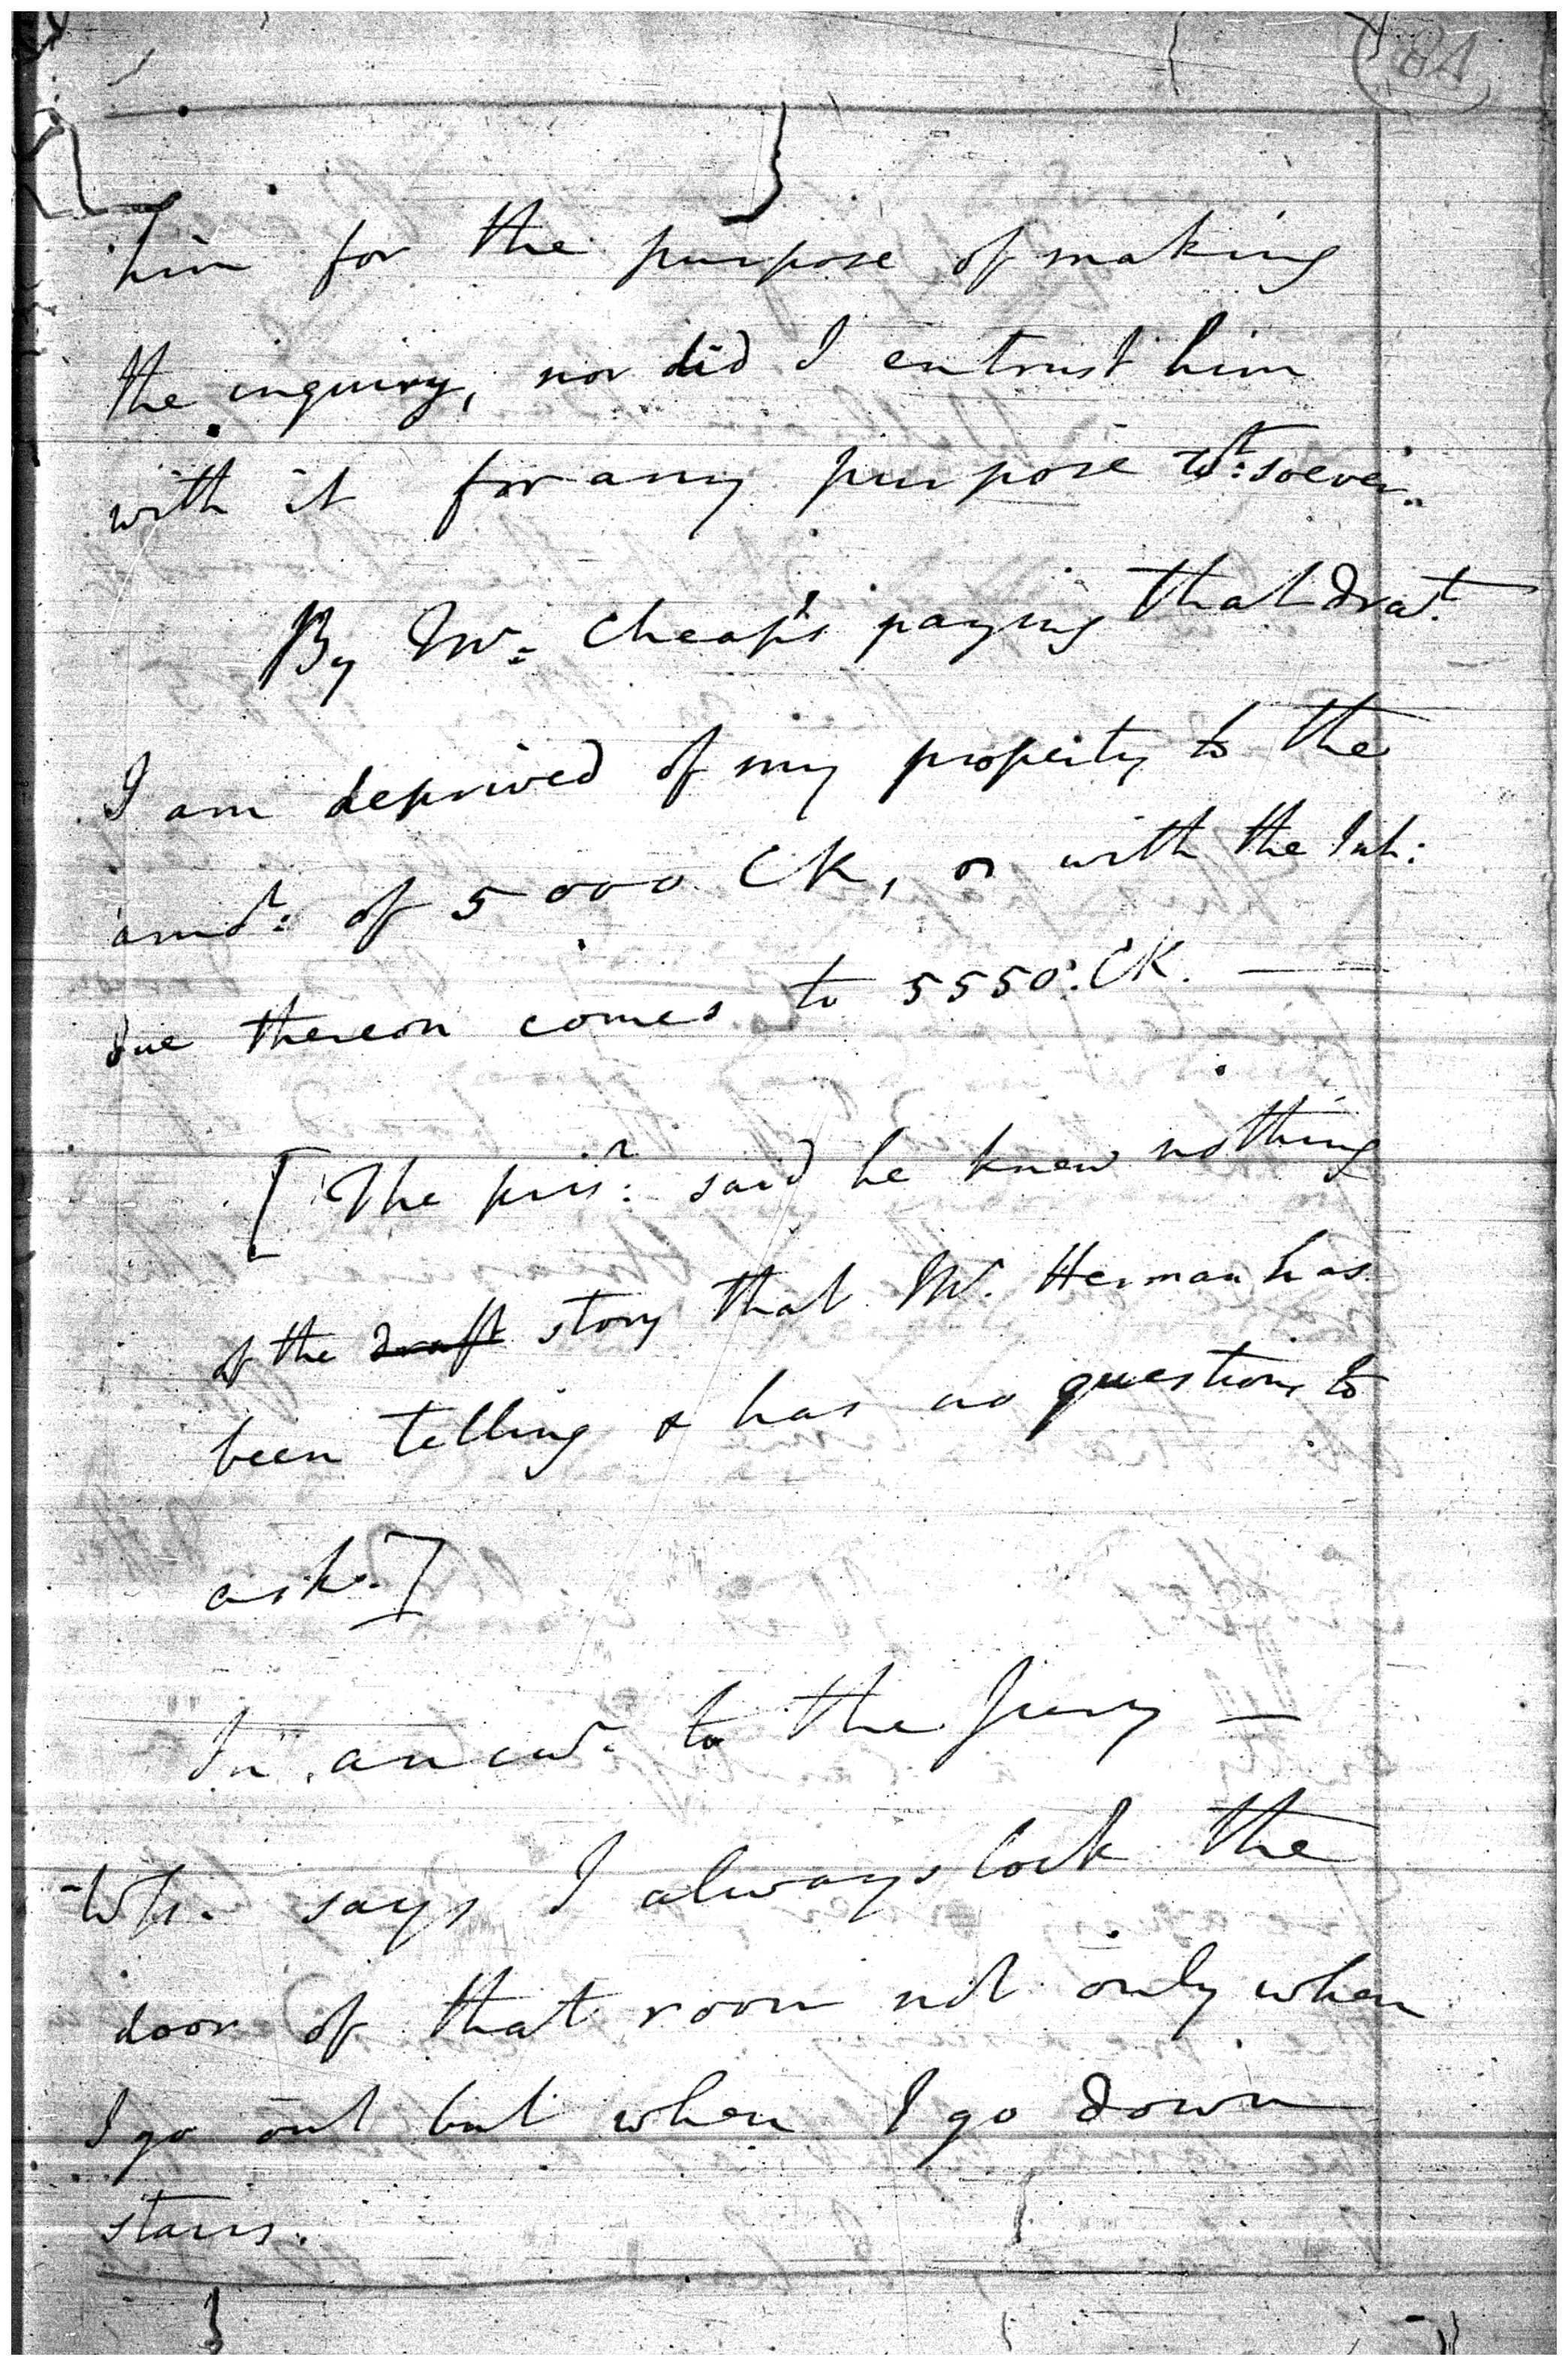 84
him for the purpose of making
the inquiry, nor did I entrust him
with it for any purpose wt: soever.
By Mr. Cheap's paying that drat.
I am deprived of my property to the
amot: of 5000 CK, or with the Int:
due thereon comes to 5550: CK. —
[The prisr: said he knew nothing
of the draft story that Mr. Herman has
been telling & has no questions to
ask.]
In answr. to the Jury —
Wts. says I always lock the
door of that room not only when
I go out but when I go down
stairs.